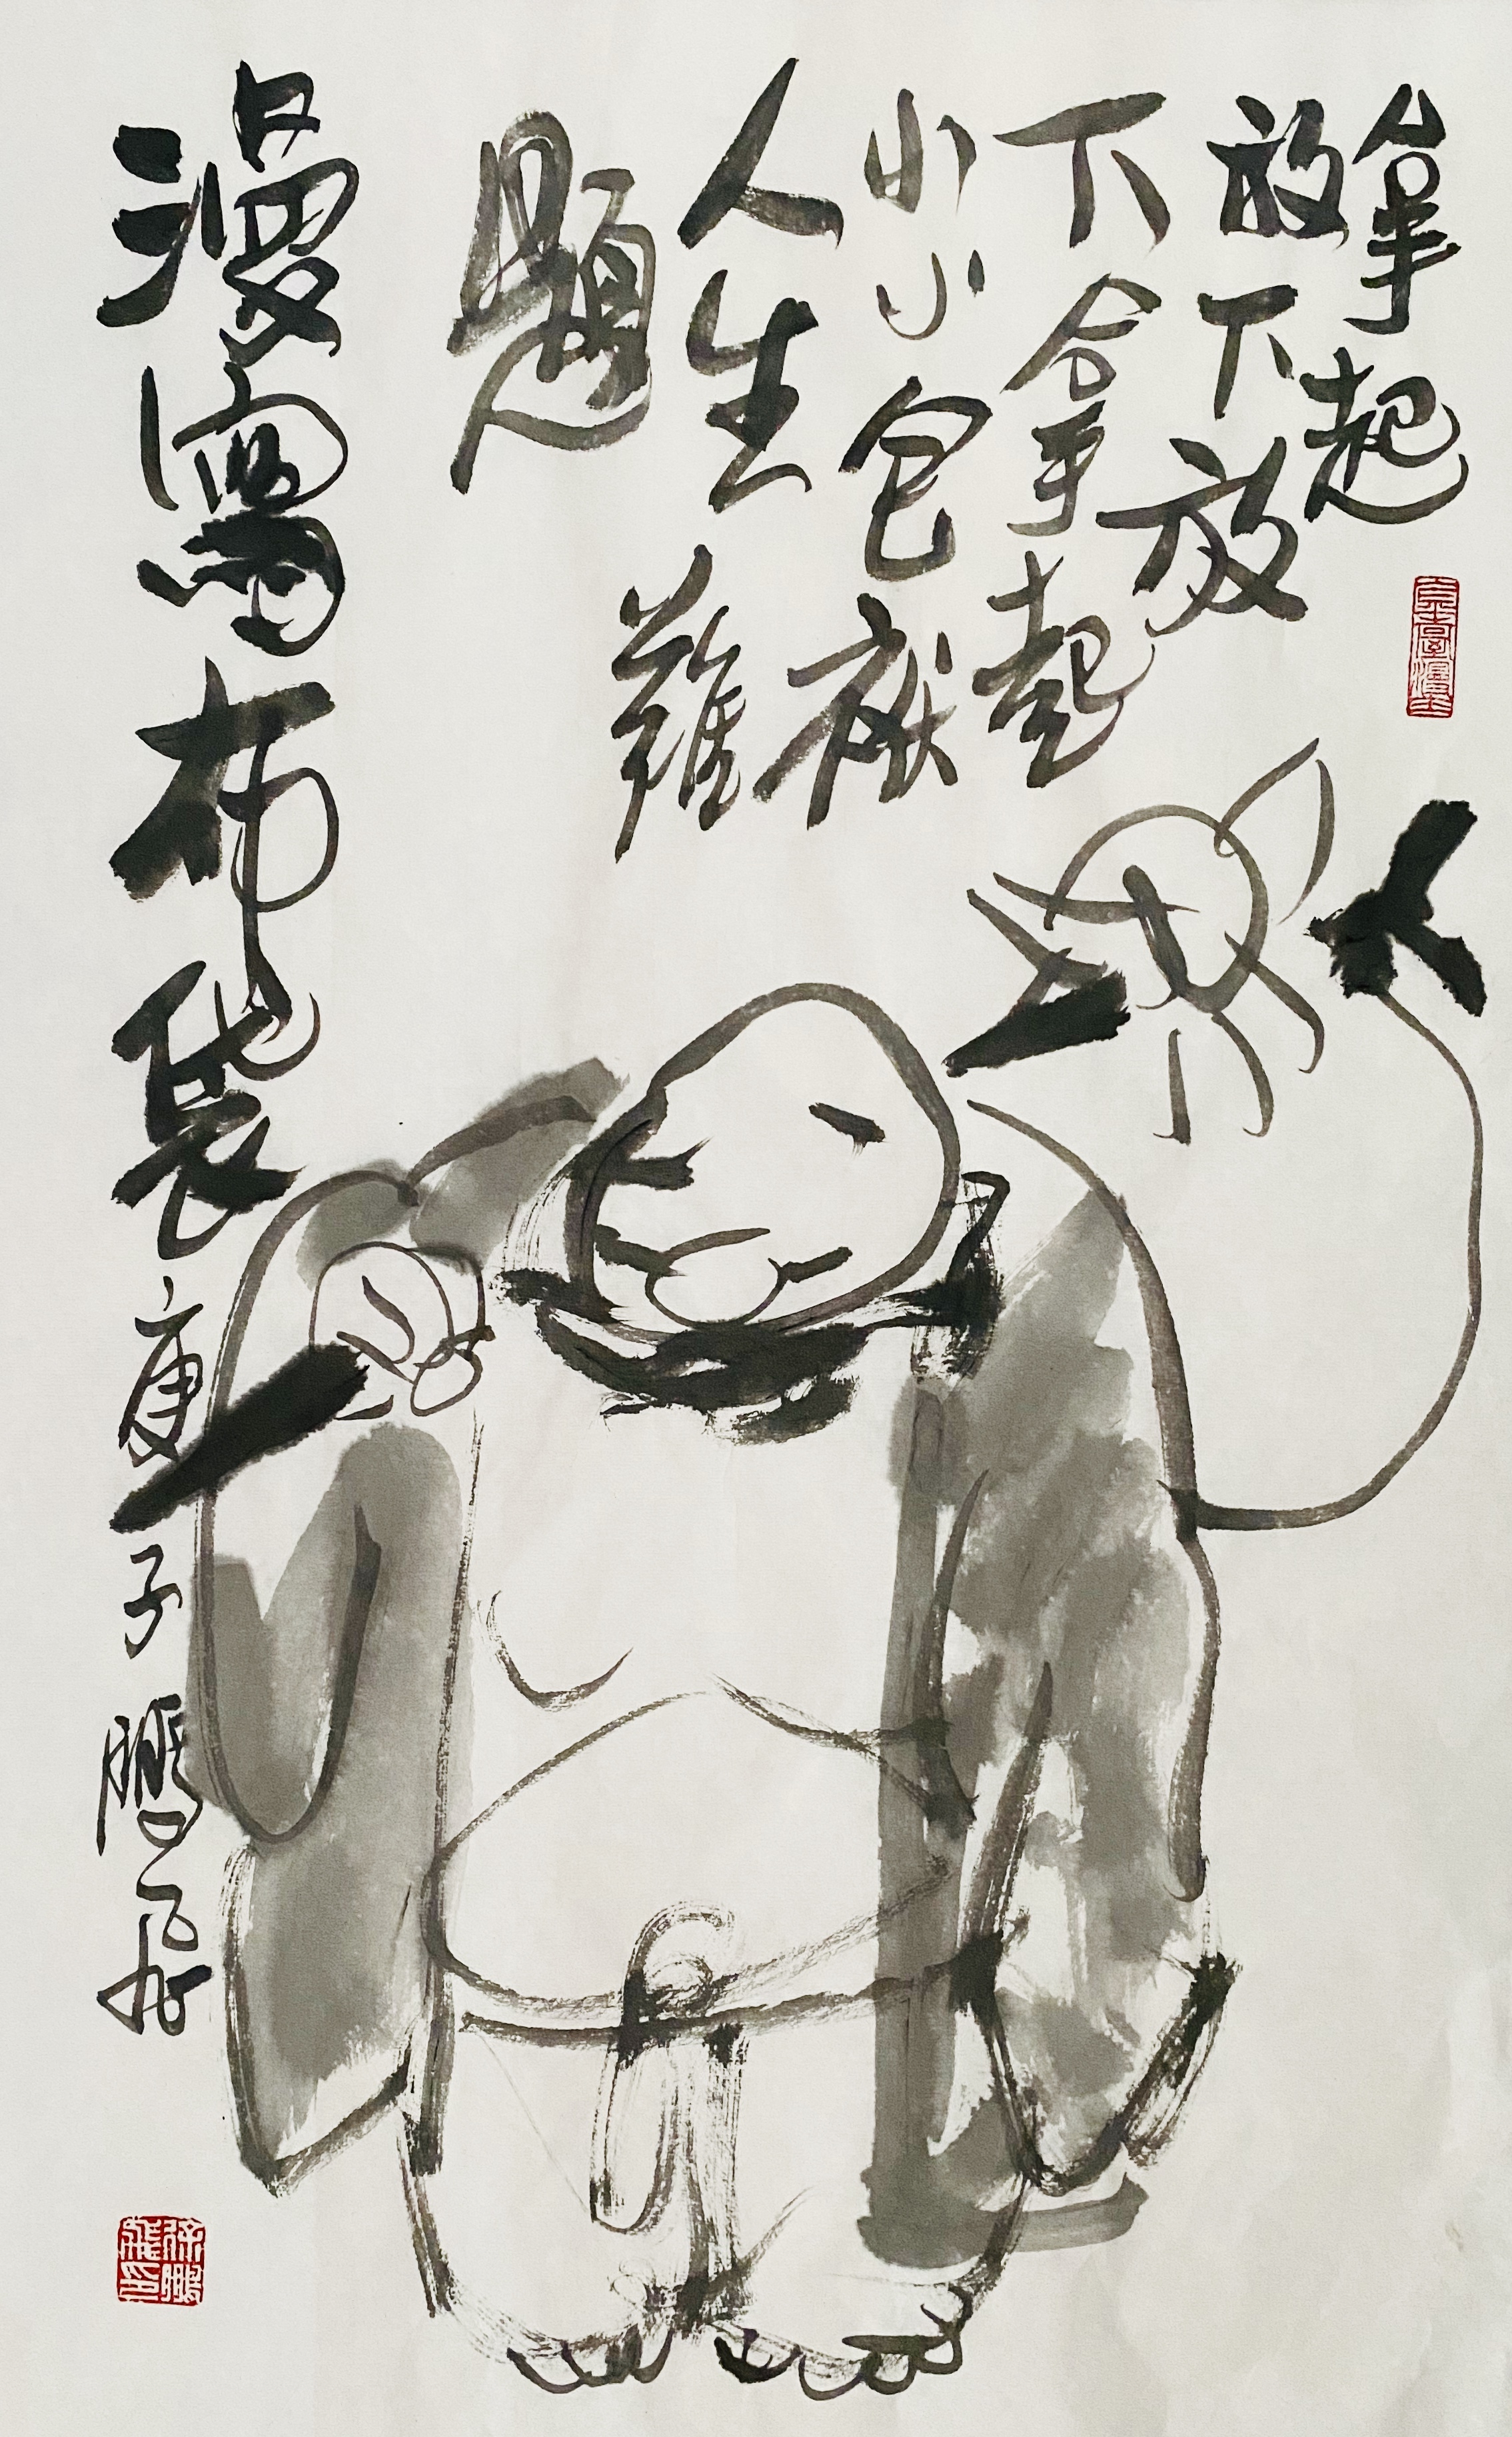 拿起
放下放
下拿起
小小包袱
人生難
題
漫寫布袋 庚子 鵬飛
徐鵬飛印